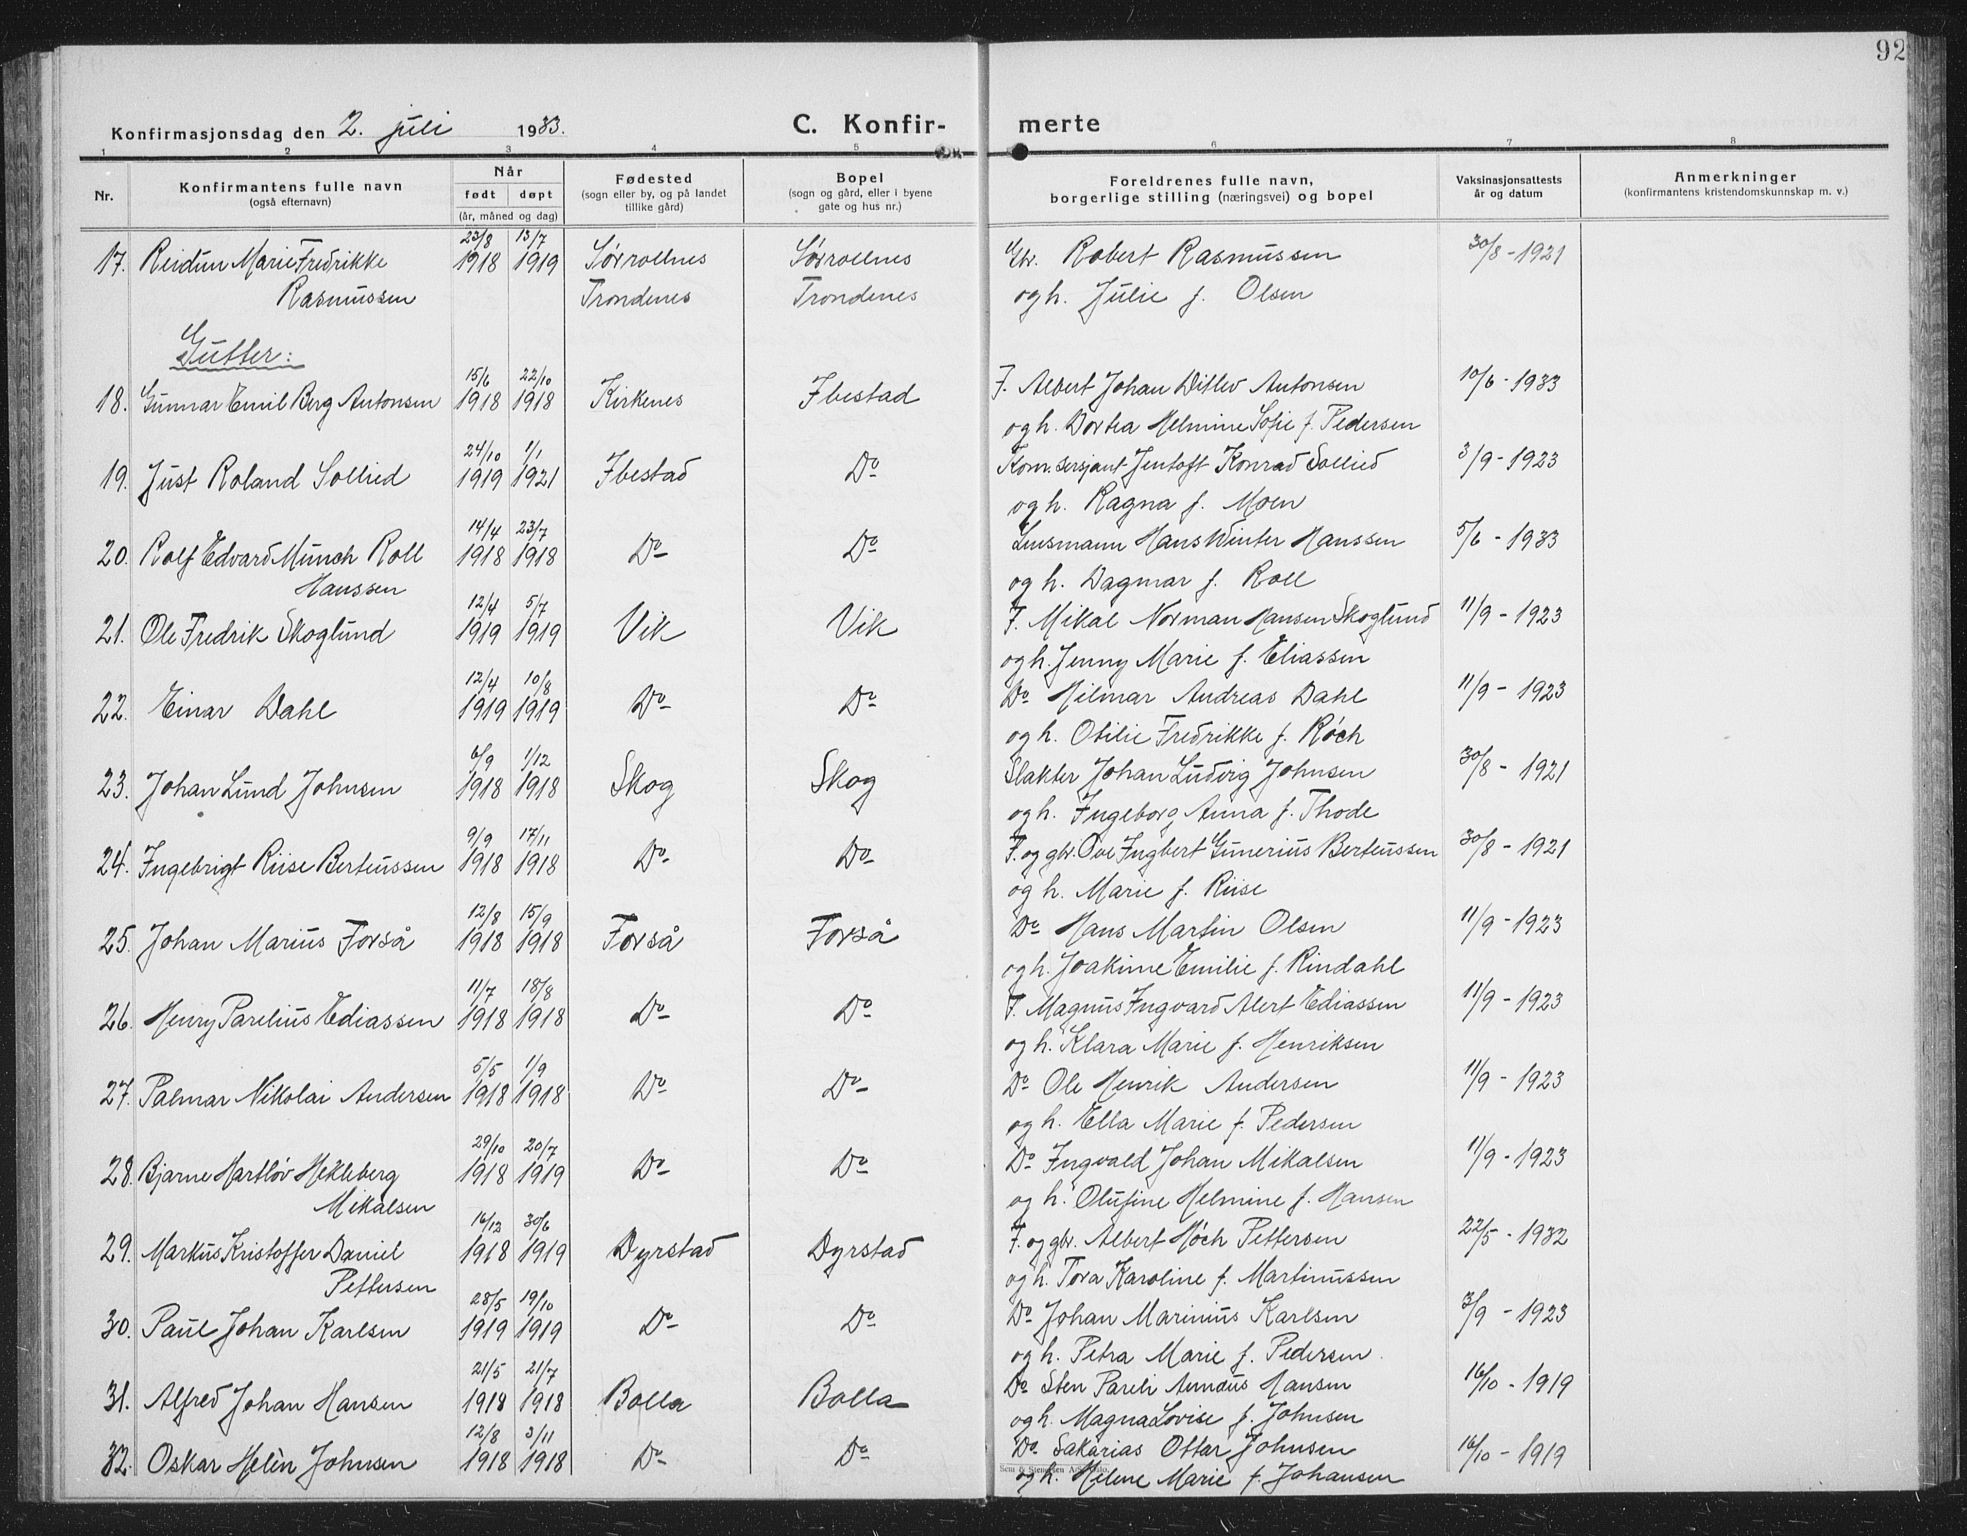 92
Konfirmasjonsdag den 2. juli 1933.
C. Konfir-
merte
1 2 3 4 5 6 7 8
Nr. Konfirmantens fulle navn (også efternavn) Når født døpt (år, måned og dag) Fødested (sogn eller by, og på landet tillike gård) Bopel (sogn og gård, eller i byene gate og hus nr.) Foreldrenes fulle navn, borgerlige stilling (næringsvei) og bopel Vaksinasjonsattests år og datum Anmerkninger (konfirmantens kristendomskunnskap m. v.)
23/8 13/7
17. Reidun Marie Fredrikke 1918 1919 Sørrollnes Sørrollnes Gbr. Robert Rasmussen 30/8 - 1921
Rasmussen Trondenes Trondenes og h. Julie f. Olsen
Gutter:
15/6 22/10
18. Gunnar Emil Berg Antonsen 1918 1918 Kirkenes Ibestad F. Albert Johan Ditlev Antonsen 10/6 - 1933
og h. Dortea Helmine Sofie f. Pedersen
24/10 1/1
19. Just Roland Sollied 1919 1921 Ibestad Do Korn.sersjant Jentoft Konrad Sollied 3/9 - 1923
og h. Ragna f. Moen
14/4 23/7
20. Rolf Edvard Munch Roll 1918 1918 Do Do Lensmann Hans Winter Hanssen 5/6 - 1933
Hanssen og h. Dagmar f. Roll
12/4 5/7
21. Ole Fredrik Skoglund 1919 1919 Vik Vik F. Mikal Norman Hansen Skoglund 11/9 - 1923
og h. Jenny Marie f. Eliassen
12/4 10/8
22. Einar Dahl 1919 1919 Do Do Do Hilmar Andreas Dahl 11/9 - 1923
og h. Otilie Fredrikke f. Røch
6/9 1/12
23. Johan Lund Johnsen 1918 1918 Skog Skog Slakter Johan Ludvig Johnsen 30/8 - 1921
og h. Ingeborg Anna f. Thode
9/9 17/11
24. Ingebrigt Riise Berteussen 1918 1918 Do Do F. og gbr. Ove Ingbert Gunerius Berteussen 30/8 - 1921
og h. Marie f. Riise
12/8 15/9
25. Johan Marius Forså 1918 1918 Forså Forså Do Hans Martin Olsen 11/9 - 1923
og h. Joakime Emilie f. Rindahl
11/7 18/8
26. Henry Parelius Ediassen 1918 1918 Do Do F. Magnus Ingvard Alert Ediassen 11/9 - 1923
og h. Klara Marie f. Henriksen
5/5 1/9
27. Palmar Nikolai Andersen 1918 1918 Do Do Do Ole Henrik Andersen 11/9 - 1923
og h. Ella Marie f. Pedersen
29/10 20/7
28. Bjarne Hartløv Hekleberg 1918 1919 Do Do Do Ingvald Johan Mikalsen 11/9 - 1923
Mikalsen og h. Olufine Helmine f. Hansen
16/12 30/6
29. Markus Kristoffer Daniel 1918 1919 Dyrstad Dyrstad F. og gbr. Albert Høch Pettersen 22/5 - 1932
Pettersen og h. Tora Karoline f. Martinussen
28/5 19/10
30. Paul Johan Karlsen 1919 1919 Do Do Do Johan Marinius Karlsen 3/9 - 1923
og h. Petra Marie f. Pedersen
21/5 21/7
31. Alfred Johan Hansen 1918 1918 Bolla Bolla Do Sten Pareli Amdus Hansen 16/10 - 1919
og h. Magna Lovise f. Johnsen
12/8 3/11
32. Oskar Helèn Johnsen 1918 1918 Do Do Do Sakarias Ottar Johnsen 16/10 - 1919
og h. Helene Marie f. Johansen